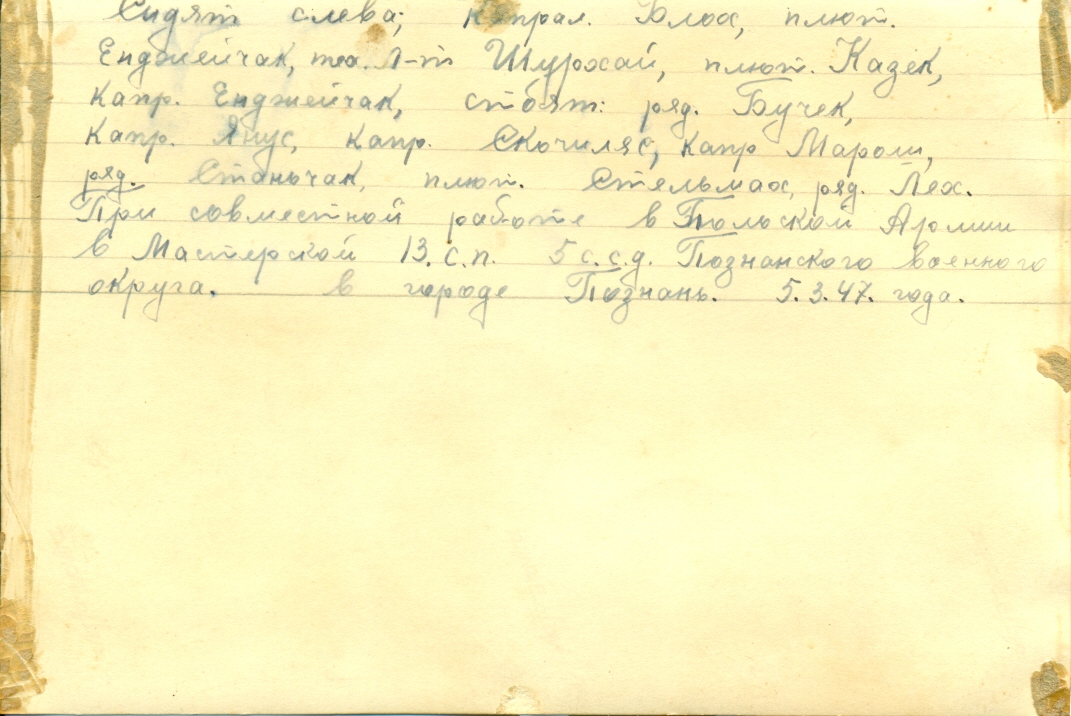 Сидят слева; капрал. Блох, плют.
Енджейчак, тех. Л-т Шурхай, плют. Казек,
капр. Енджейчак, стоят: ряд. Бучек,
капр. Янус, капр. Скочиляс, капр Марош,
ряд. Станьчак, плют. Стельмах, ряд. Лех.
При совместной работе в Польской Армии
в Мастерской 13. с.п. 5 с.с.д. Познанского военного
округа. в городе Познань. 5.3.47. года.